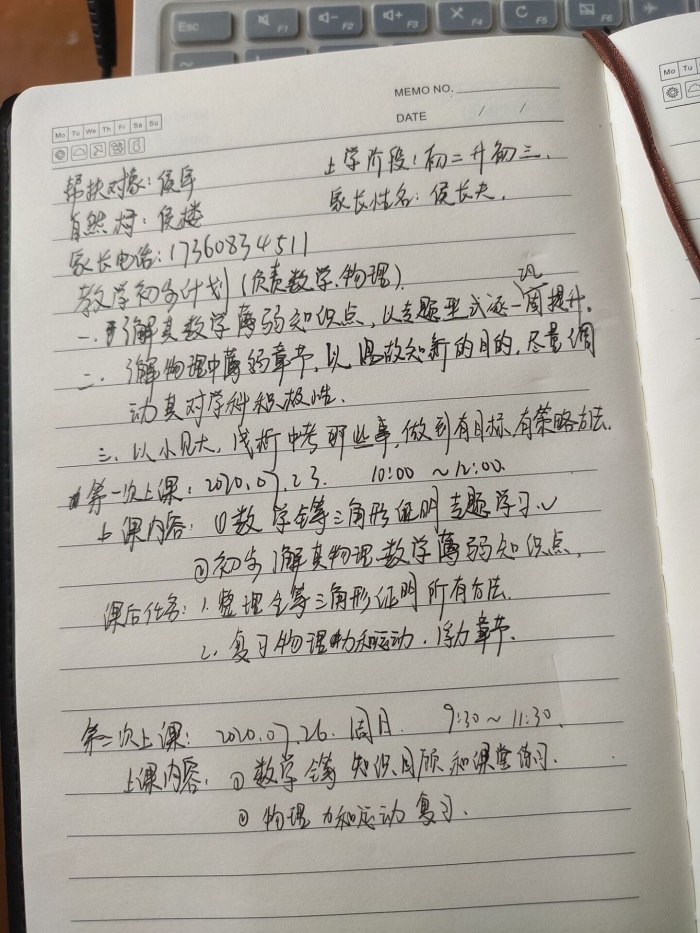 Esc F1 F2 F3 F4 F5 F6
MEMO NO.
Mo Tu We Th Fr Sa Su
Mo Tu
DATE / /
帮扶对象：侯军 上学阶段：初二升初三.
自然村：侯楼 家长性名：侯长夫.
家长电话：17360834511
教学初步计划（负责数学.物理）.
一.了解其数学薄弱知识点，以专题型式逐一巩固提升。
二.了解物理中薄弱章节，以温故知新的目的，尽量调
动其对学科积极性.
三.以小见大，浅析中考那些事，做到有目标.有策略方法.
第一次上课：2020.07.23. 10:00 ~12:00.
上课内容：①数学全等三角形证明专题学习.
②初步了解其物理.数学薄弱知识点.
课后任务：1.整理全等三角形证明所有方法.
2.复习物理力和运动.浮力章节.
第二次上课：2020.07.26.周日. 9:30~11:30.
上课内容：①数学全等知识回顾和课堂练习.
②物理力和运动复习.